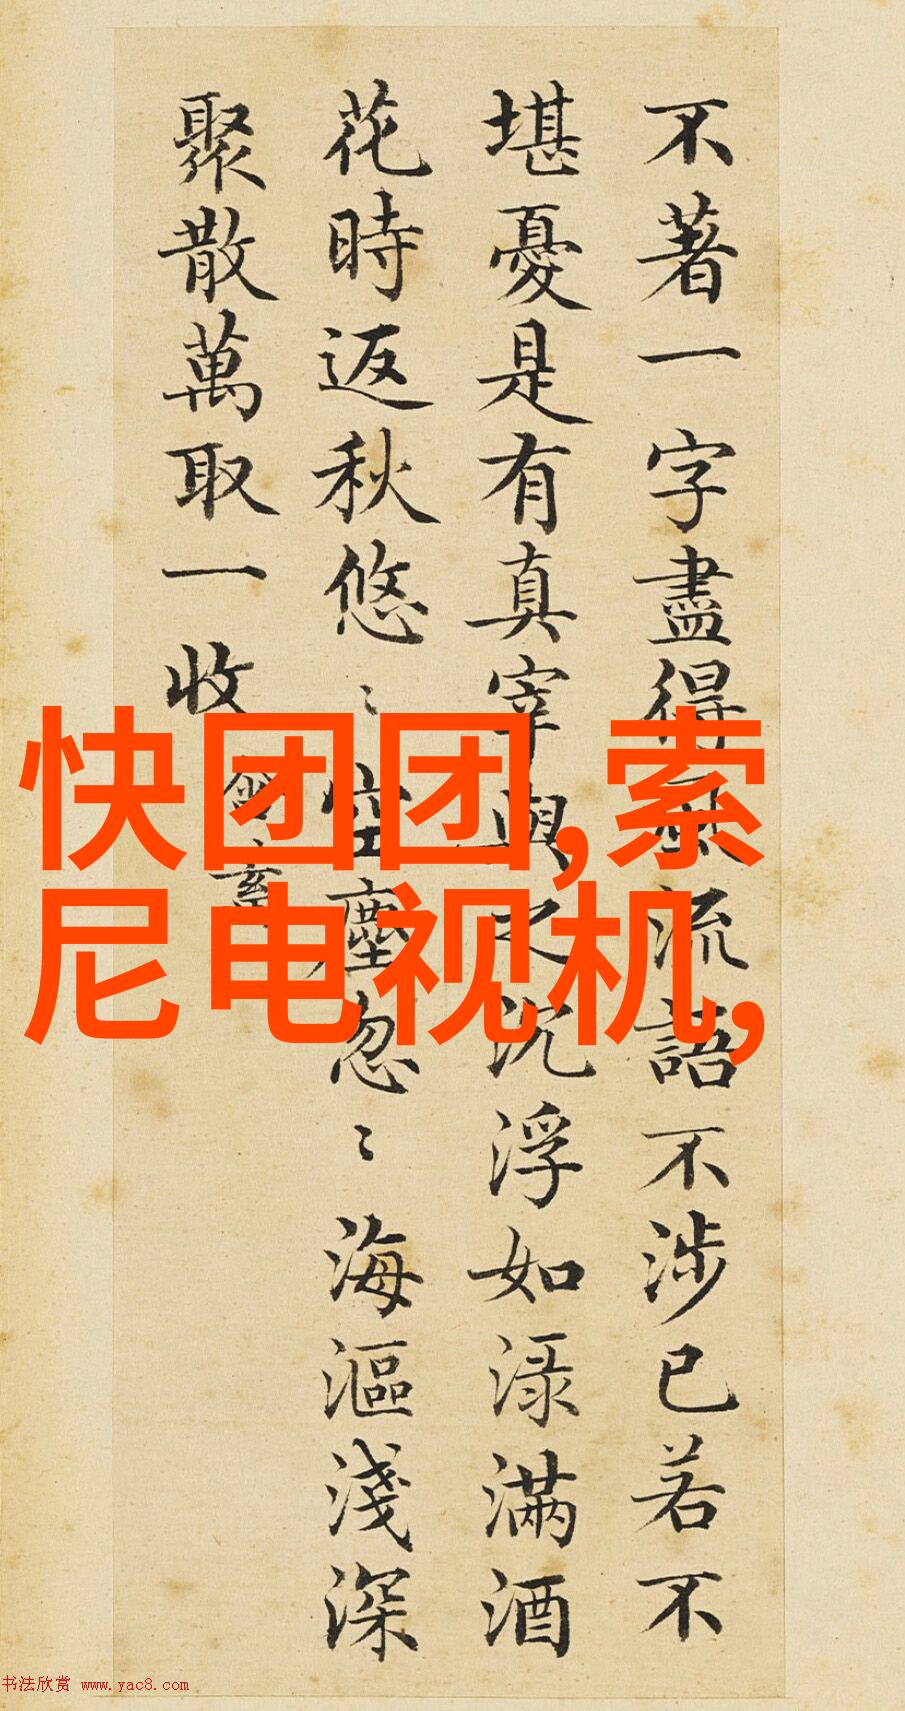 不著一字盡得風流語不涉已若不
堪憂是有真宰與之沉浮如渌滿酒
花時返秋悠〻空塵忽〻海漚淺深
聚散萬取一收
快团团,索
尼电视机,
书法欣赏 www.yac8.com